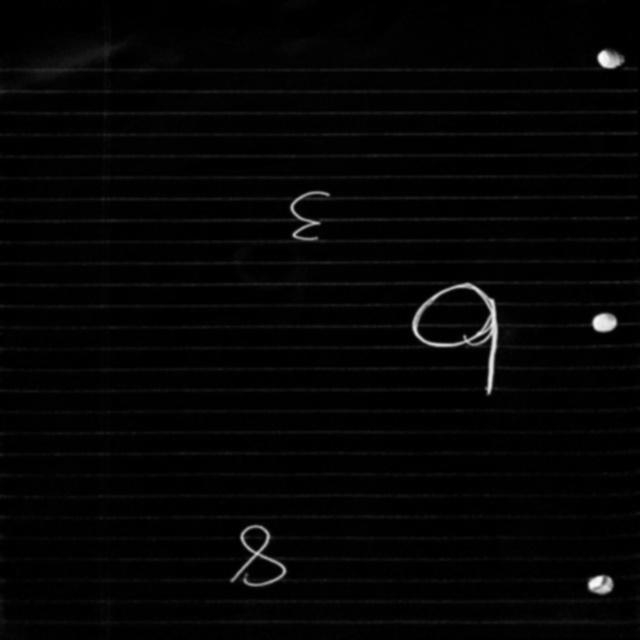 ε
9
8